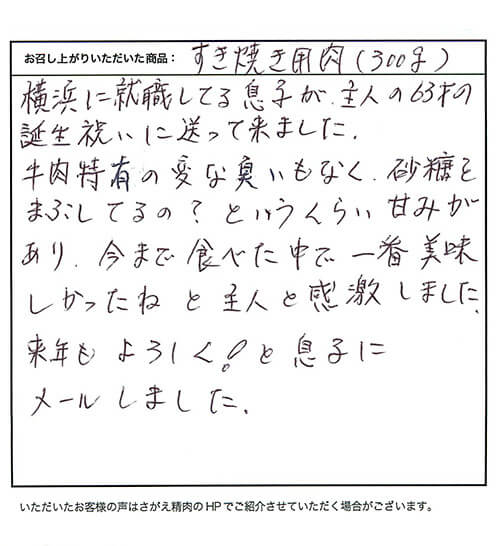 お召し上がりいただいた商品： すき焼き用肉(300g)
横浜に就職してる息子が、主人の63才の
誕生祝いに送って来ました。
牛肉特有の変な臭いもなく、砂糖を
まぶしてるの？というくらい甘みが
あり、今まで食べた中で一番美味
しかったねと主人と感激しました。
来年もよろしく！と息子に
メールしました。
いただいたお客様の声はさがえ精肉のHPでご紹介させていただく場合がございます。